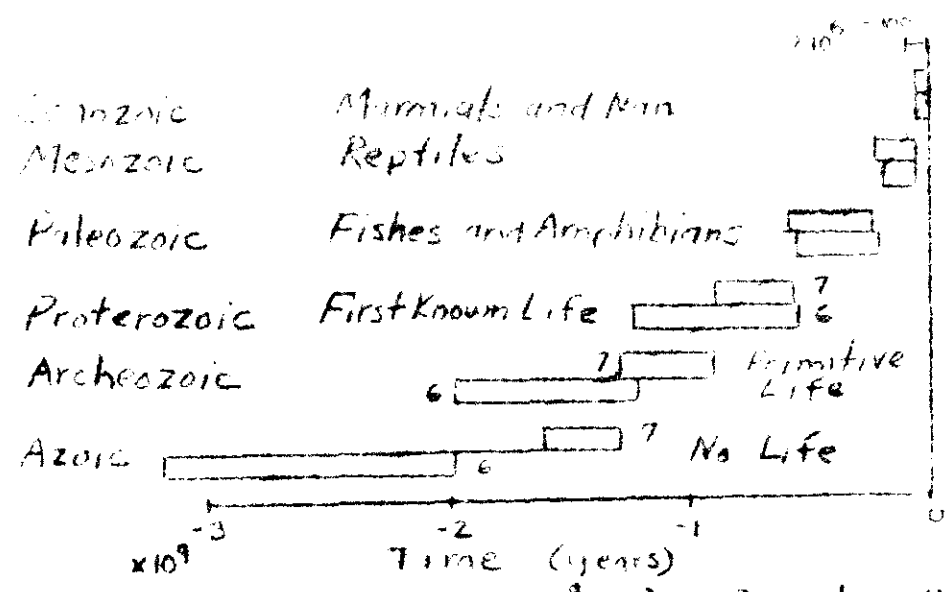 Mammals and Man
Mesozoic Reptiles
Paleozoic Fishes and Amphibians
7
Proterozoic First Known Life 6
Archeozoic 7 Primitive
6 Life
Azoic 7 No Life
6
-3 -2 -1 0
x10⁹ Time (years)